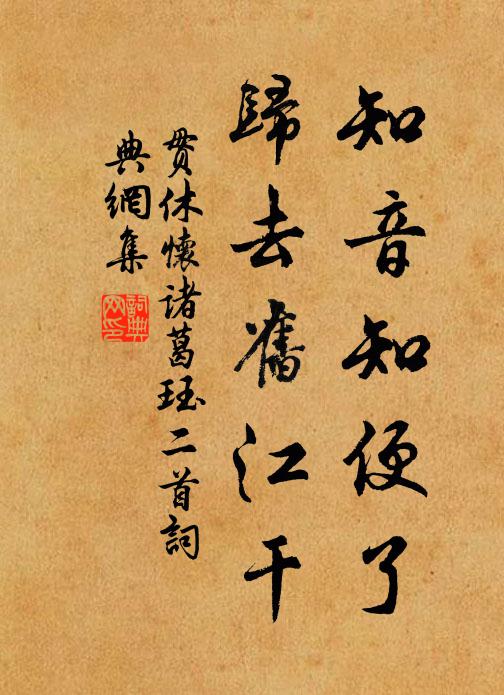 知音知便了
歸去舊江干
貫休懷諸葛珏二首詞
典網集
詞典網印